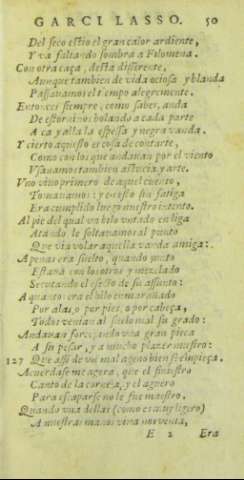 GARCI LASSO. 50
Del seco estio el gran calor ardiente,
Y va faltando sombra a Filomena.
Con otra caça, desta diferente,
Aunque tambien de vida ociosa y blanda
Passavamos el tiempo alegremente.
Entonces siempre, como sabes, anda
De estorninos bolando a cada parte
A ca y alla la espessa y negra vanda.
Y cierto aquesto es cosa de contarte,
Como con los que andavan por el viento
Usavamos tambien astucia y arte.
Uno vivo primero de aquel cuento,
Tomavamos: y en esto sin fatiga
Era cumplido luego nuestro intento.
Al pie del qual un hilo untado en liga
Atando le soltavamos al punto
Que via volar aquella vanda amiga:
Apenas era suelto, quando junto
Estava con los otros y mezclado
Secutando el efeto de su assunto:
A quantos era el hilo enmarañado
Por alas, o por pies, o por cabeça,
Todos venian al suelo mal su grado:
Andavan forcejando una gran pieça
A su pesar, y a mucho plazer nuestro:
127 Que assi de un mal ageno bien se empieça.
Acuerdase me agora, que el siniestro
Canto de la corneja, y el aguero
Para escaparse no le fue maestro.
Quando una dellas (como es muy ligero)
A nuestras manos viva nos venia,
E 2 Era